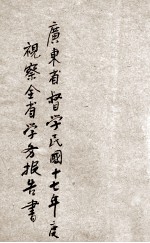 廣東省督學民國十七年度
視察全省學務報告書